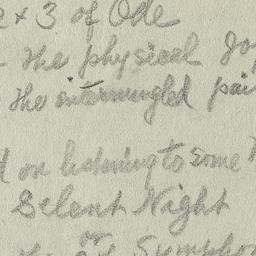 2 x 3 of Ode
- the physical Jo
the intermingled pai
on listening to some
Silent Night
or
Sympho